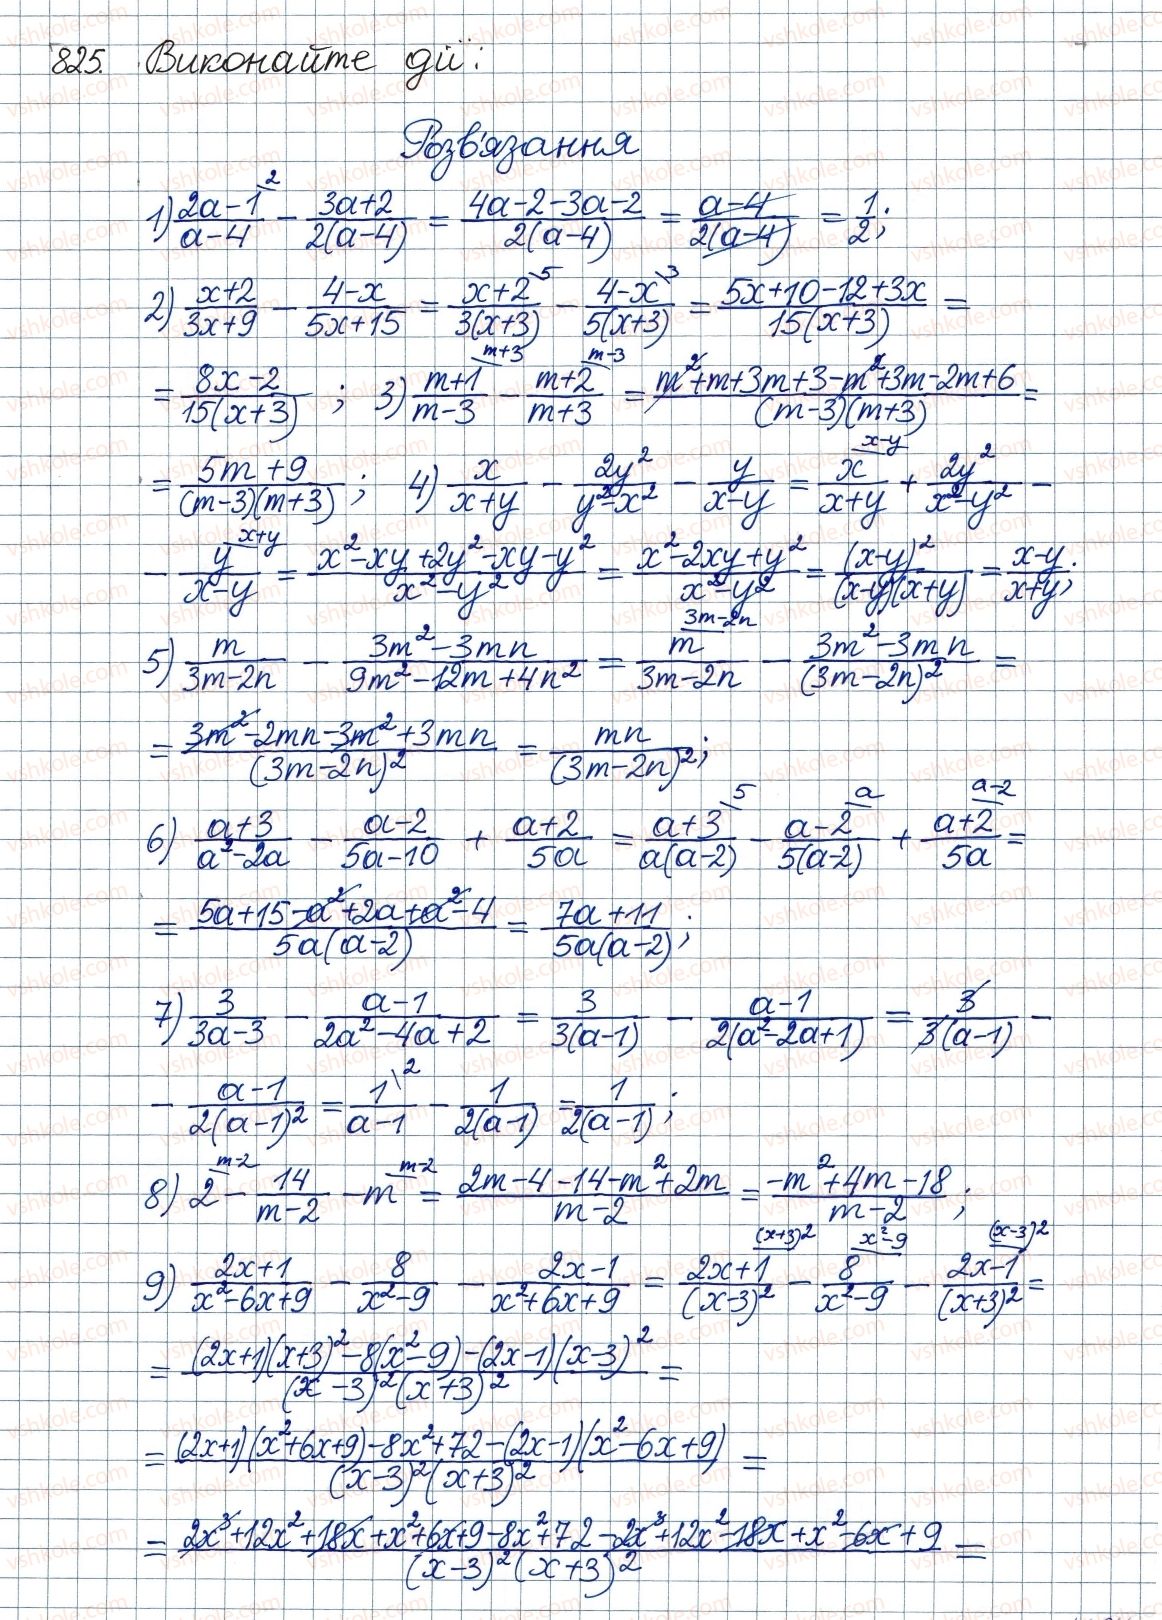 825. Виконайте дії:
Розв'язання
1) (2a-1)/(a-4) \2 - (3a+2)/(2(a-4)) = (4a-2-3a-2)/(2(a-4)) = (a-4)/(2(a-4)) = 1/2;
2) (x+2)/(3x+9) - (4-x)/(5x+15) = (x+2)/(3(x+3)) \5 - (4-x)/(5(x+3)) \3 = (5x+10-12+3x)/(15(x+3)) =
= (8x-2)/(15(x+3)); 3) (m+1)/(m-3) \m+3 - (m+2)/(m+3) \m-3 = (m²+m+3m+3-m²+3m-2m+6)/((m-3)(m+3)) =
= (5m+9)/((m-3)(m+3)); 4) x/(x+y) - 2y²/(y²-x²) - y/(x-y) = x/(x+y) \x-y + 2y²/(x²-y²) -
- y/(x-y) \x+y = (x²-xy+2y²-xy-y²)/(x²-y²) = (x²-2xy+y²)/(x²-y²) = (x-y)²/((x-y)(x+y)) = (x-y)/(x+y);
5) m/(3m-2n) - (3m²-3mn)/(9m²-12m+4n²) = m/(3m-2n) \3m-2n - (3m²-3mn)/(3m-2n)² =
= (3m²-2mn-3m²+3mn)/(3m-2n)² = mn/(3m-2n)²;
6) (a+3)/(a²-2a) - (a-2)/(5a-10) + (a+2)/5a = (a+3)/(a(a-2)) \5 - (a-2)/(5(a-2)) \a + (a+2)/5a \a-2 =
= (5a+15-a²+2a+a²-4)/(5a(a-2)) = (7a+11)/(5a(a-2));
7) 3/(3a-3) - (a-1)/(2a²-4a+2) = 3/(3(a-1)) - (a-1)/(2(a²-2a+1)) = 3/(3(a-1)) -
- (a-1)/(2(a-1)²) = 1/(a-1) \2 - 1/(2(a-1)) = 1/(2(a-1));
8) 2 \m-2 - 14/(m-2) - m \m-2 = (2m-4-14-m²+2m)/(m-2) = (-m²+4m-18)/(m-2);
9) (2x+1)/(x²-6x+9) - 8/(x²-9) - (2x-1)/(x²+6x+9) = (2x+1)/(x-3)² \(x+3)² - 8/(x²-9) \x²-9 - (2x-1)/(x+3)² \(x-3)² =
= ((2x+1)(x+3)²-8(x²-9)-(2x-1)(x-3)²)/((x-3)²(x+3)²) =
= ((2x+1)(x²+6x+9)-8x²+72-(2x-1)(x²-6x+9))/((x-3)²(x+3)²) =
= (2x³+12x²+18x+x²+6x+9-8x²+72-2x³+12x²-18x+x²-6x+9)/((x-3)²(x+3)²) =